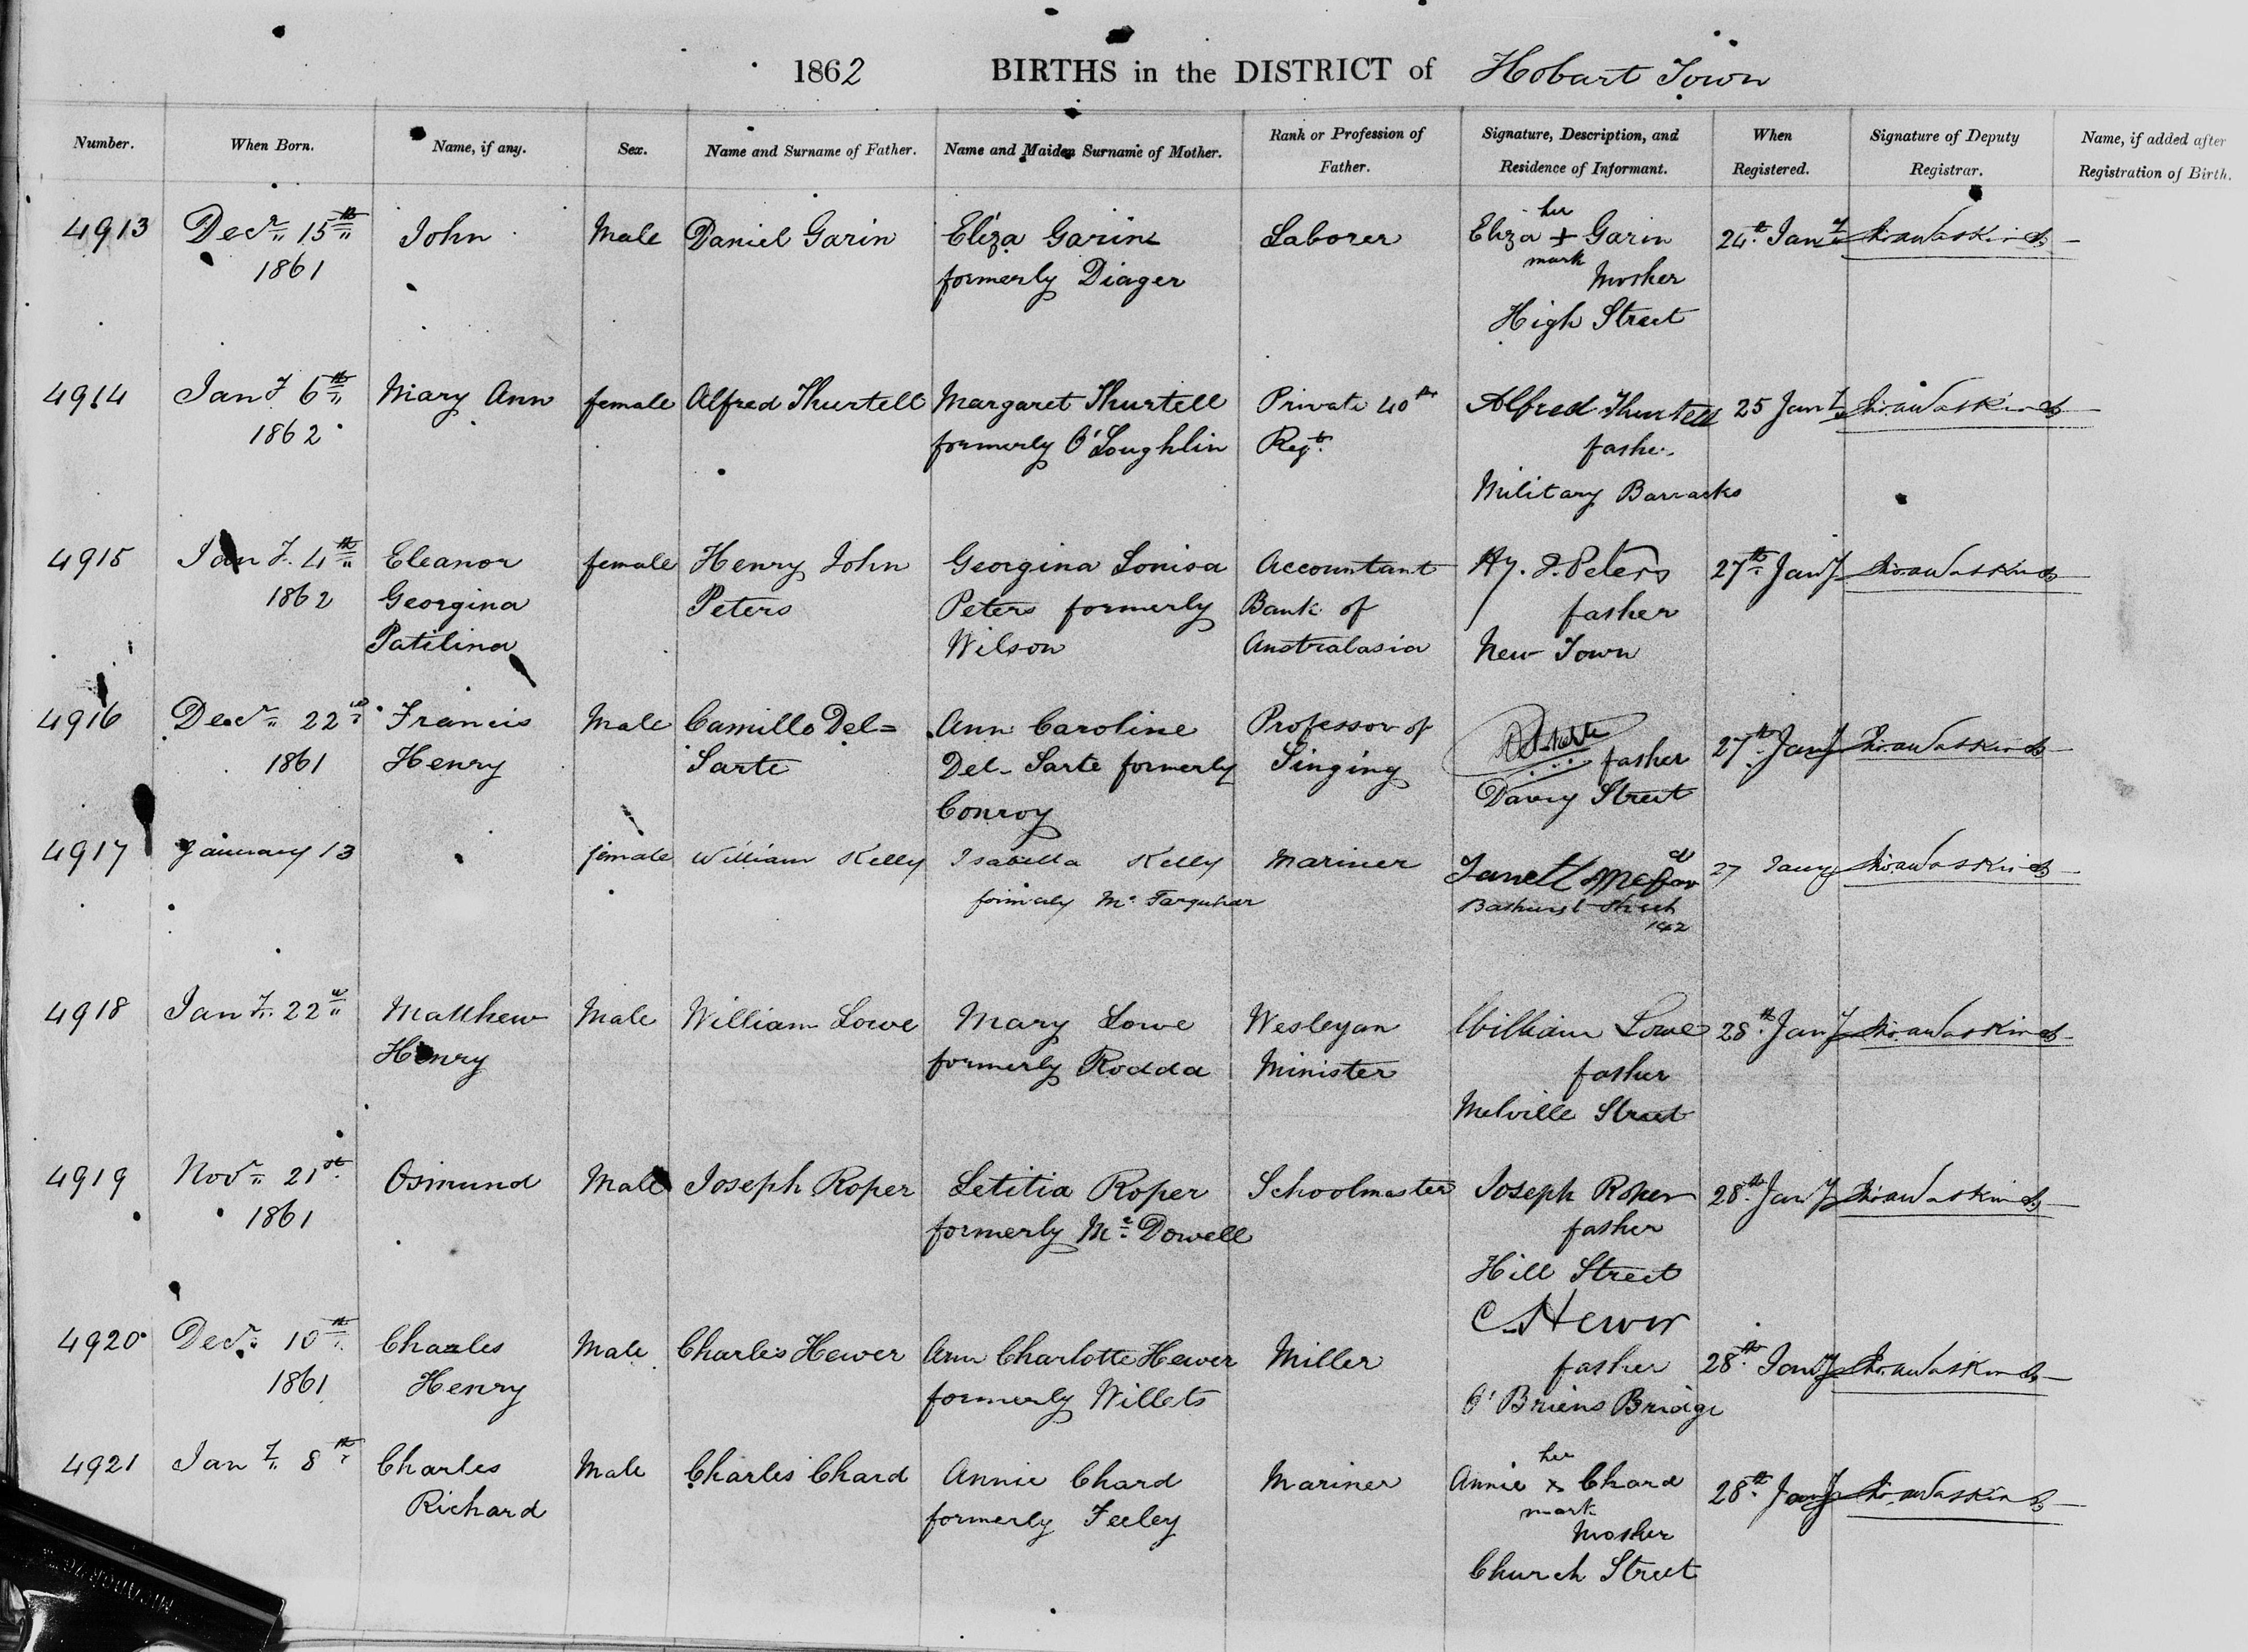 1862 BIRTHS in the DISTRICT of Hobart Town
Number. When Born. Name, if any. Sex. Name and Surname of Father. Name and Maiden Surname of Mother. Rank or Profession of Father. Signature, Description, and Residence of Informant. When Registered. Signature of Deputy Registrar. Name, if added after Registration of Birth.
4913 Decr 15th John Male Daniel Garin Eliza Garin Laborer Eliza her + Garin 24th Jany
1861 formerly Diager mark
Mother
High Street
4914 Jany 6th Mary Ann female Alfred Thurtell Margaret Thurtell Private 40th Alfred Thurtell 25 Jany
1862 formerly O'Loughlin Regt. father
Military Barracks
4915 Jany 4th Eleanor female Henry John Georgina Louisa Accountant Hy. J. Peters 27th Jany
1862 Georgina Peters Peters formerly Bank of father
Patilina Wilson Australasia New Town
4916 Decr 22nd Francis Male Camillo Del= Ann Caroline Professor of 27th Jany
1861 Henry Sarte Del-Sarte formerly Singing father
Conroy Davey Street
4917 January 13 female William Kelly Isabella Kelly Mariner 27 Jany
formerly Mc Farquhar Bathurst Street
142
4918 Jany 22nd Matthew Male William Lowe Mary Lowe Wesleyan William Lowe 28th Jany
Henry formerly Rodda Minister father
Melville Street
4919 Novr 21st Osmund Male Joseph Roper Letitia Roper Schoolmaster Joseph Roper 28th Jany
1861 formerly Mc Dowell father
Hill Street
4920 Decr 10th Charles Male Charles Hewer Ann Charlotte Hewer Miller C. Hewer 28th Jany
1861 Henry formerly Willets father
O'Briens Bridge
4921 Jany 8th Charles Male Charles Chard Annie Chard Mariner Annie her x Chard 28th Jany
Richard formerly Feeley mark
Mother
Church Street